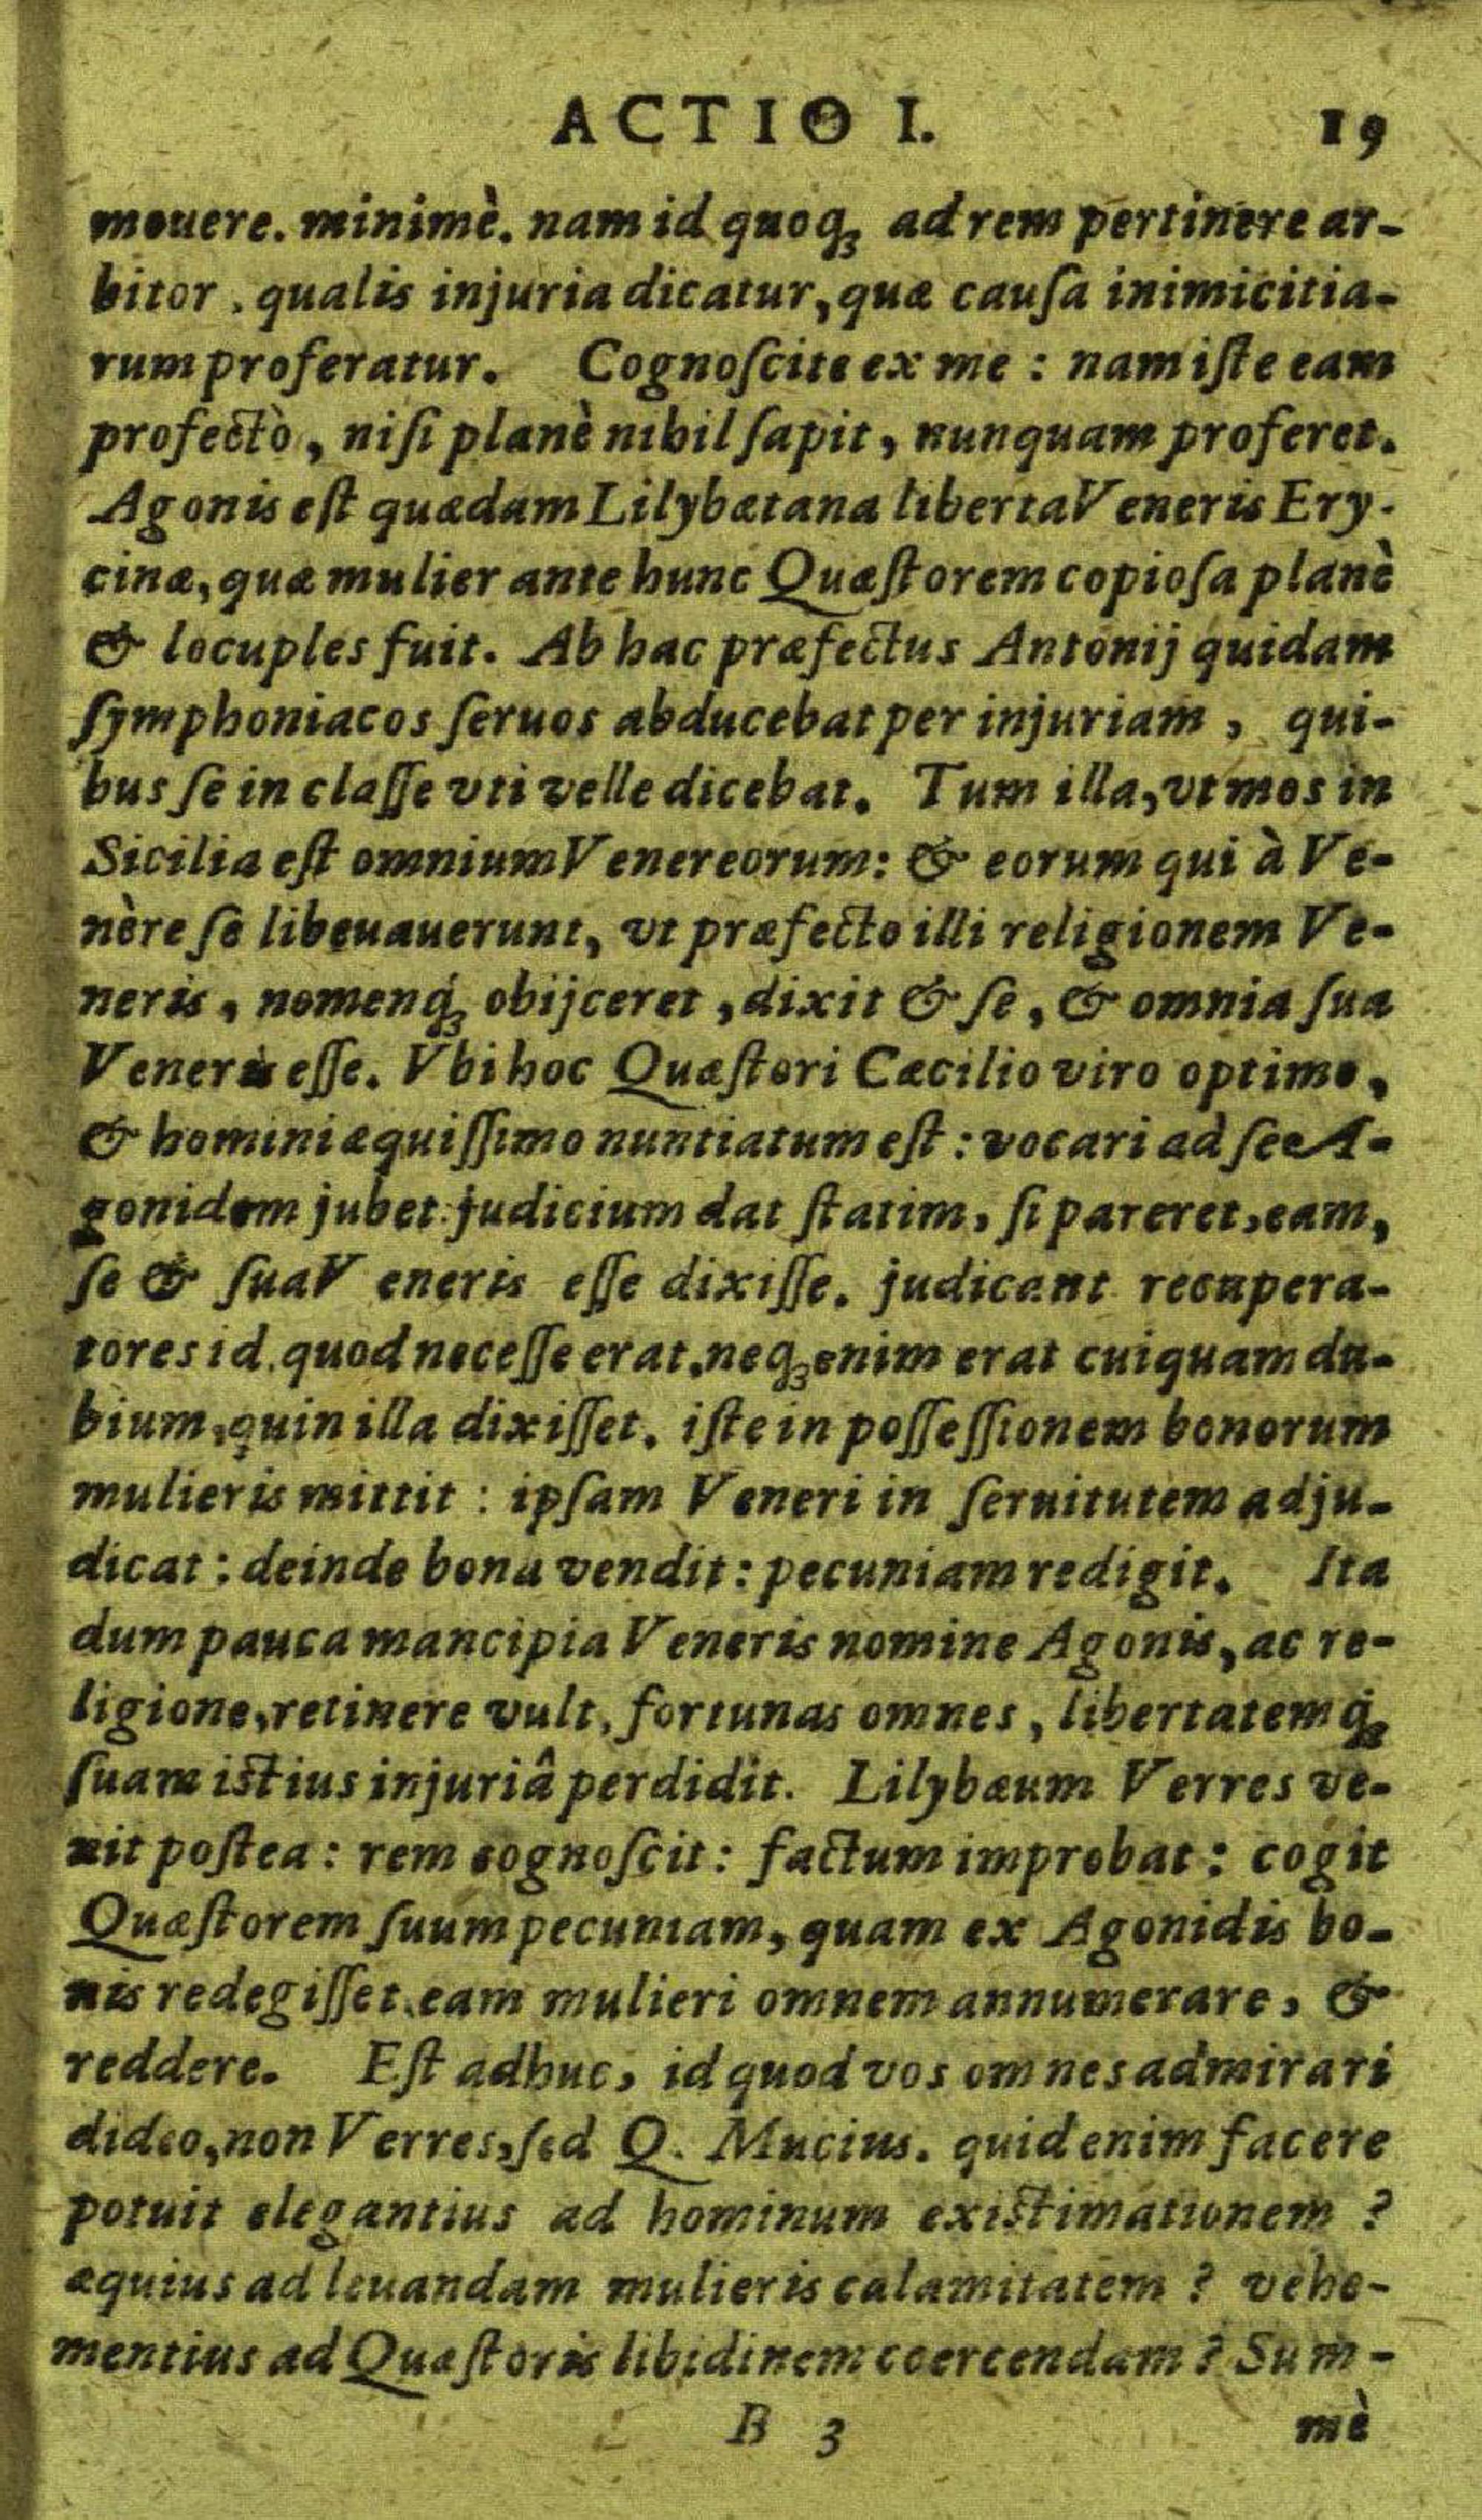 ACTIO I. 19
mouere. minimè. nam id quoq; ad rem pertinere ar-
bitor. qualis injuria dicatur, quæ cauſa inimicitia-
rum proferatur. Cognoſcite ex me : nam iſte eam
profectò, niſi planè nihil ſapit, nunquam proferet.
Agonis eſt quædam Lilybætana liberta Veneris Ery-
cinæ, quæ mulier ante hunc Quæſtorem copioſa planè
& locuples fuit. Ab hac præfectus Antonij quidam
ſymphoniacos ſeruos abducebat per injuriam, qui-
bus ſe in claſſe vti velle dicebat. Tum illa, vt mos in
Sicilia eſt omnium Venereorum: & eorum qui à Ve-
nère ſe libeuauerunt, vt præfecto illi religionem Ve-
neris, nomenq́; obijceret, dixit & ſe, & omnia ſua
Veneris eſſe. Vbi hoc Quæſtori Cæcilio viro optimo,
& homini æquiſſimo nuntiatum eſt : vocari ad ſe A-
gonidem jubet. judicium dat ſtatim, ſi pareret, eam,
ſe & ſua Veneris eſſe dixiſſe. judicant recupera-
tores id. quod neceſſe erat. neq; enim erat cuiquam du-
bium, quin illa dixiſſet. iſte in poſſeſſionem bonorum
mulieris mittit : ipſam Veneri in ſeruitutem adju-
dicat : deinde bona vendit : pecuniam redigit. Ita
dum pauca mancipia Veneris nomine Agonis, ac re-
ligione, retinere vult, fortunas omnes, libertatemq́;
ſuam istius injuriâ perdidit. Lilybæum Verres ve-
nit poſtea : rem cognoſcit : factum improbat : cogit
Quæſtorem ſuum pecuniam, quam ex Agonidis bo-
nis redegiſſet, eam mulieri omnem annumerare, &
reddere. Eſt adhuc, id quod vos omnes admirari
dideo, non Verres, ſed Q. Mucius. quid enim facere
potuit elegantius ad hominum existimationem ?
æquius ad leuandam mulieris calamitatem ? vehe-
mentius ad Quæſtoris libidinem coercendam ? Sum-
B 3 mè